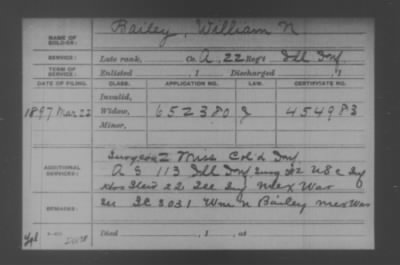 NAME OF SOLDIER: Bailey, William N
SERVICE: Late rank, Co. A, 22 Reg't Ill Inf.
TERM OF SERVICE: Enlisted , 1 Discharged , 1
DATE OF FILING. CLASS. APPLICATION NO. LAW. CERTIFICATE NO.
1897 Mar 22
Invalid,
Widow, 652380 J 454983
Minor,
ADDITIONAL SERVICES: Surgeon 2 Miss Col'd Inf
A S 113 Ill Inf Surg 2 U S C Inf
22 Mex War
REMARKS: 3031 Wm N Bailey Mex War
Died , 1 , at